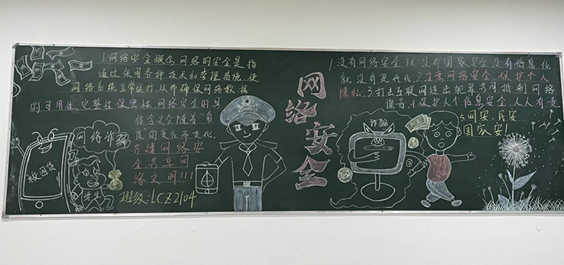 1.网络安全概念:网络的安全是指
通过使用各种技术和管理措施,使
网络系统正常运行,从而确保网络数据
的可用性,完整性,保密性,网络安全的具
体含义会随着“角
度”的变化而变化.
共建网络安
全,共享网
络文明!!!
班级:LCZ2104
网络诈骗
校园贷
网络安全
1.没有网络安全,就没有国家安全,没有信息化
就没有现代化.2.注意网络安全,保护个人
隐私.3.打击互联网违法犯罪
4.保护个人信息安全,人人有责
5.网安,民安
国家安
诈骗